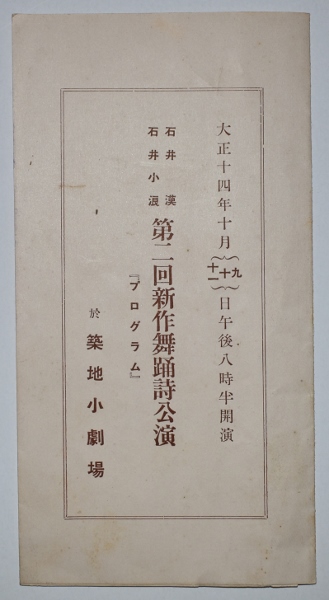 大正十四年十月{九十十一}日午後八時半開演
石井漠
石井小浪
第二回新作舞踊詩公演
『プログラム』
於築地小劇場